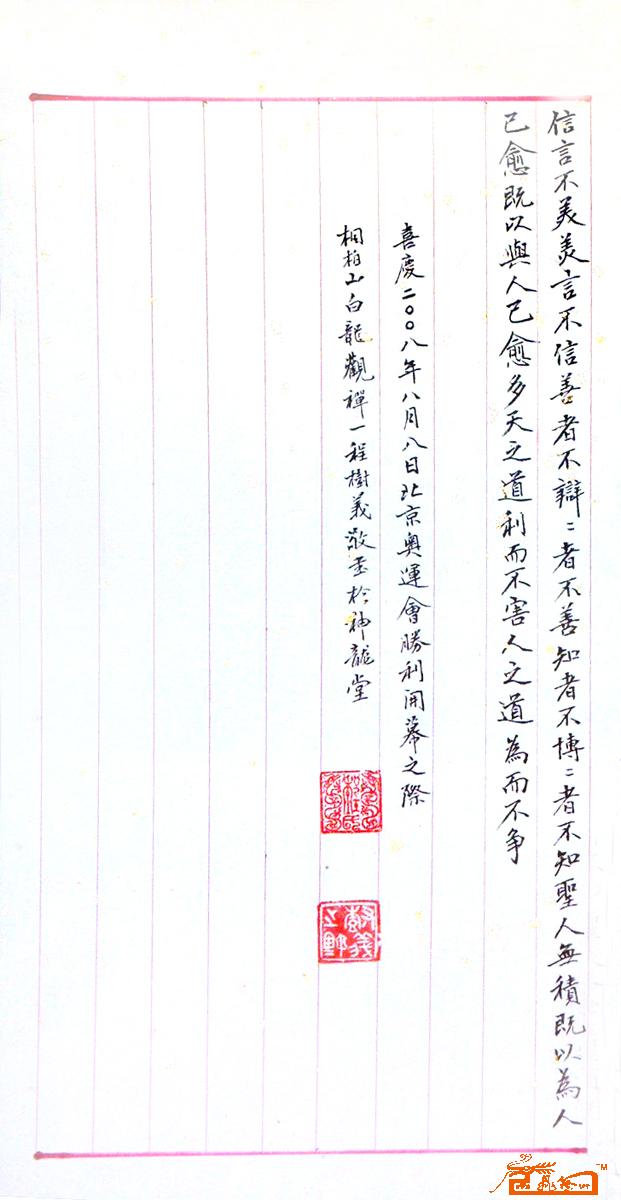 信言不美美言不信善者不辯〻者不善知者不博〻者不知聖人無積既以為人
己愈既以與人己愈多天之道利而不害人之道為而不争
喜慶二〇〇八年八月八日北京奧運會勝利開幕之際
桐柏山白龍觀禪一程樹義敬書於神龍堂